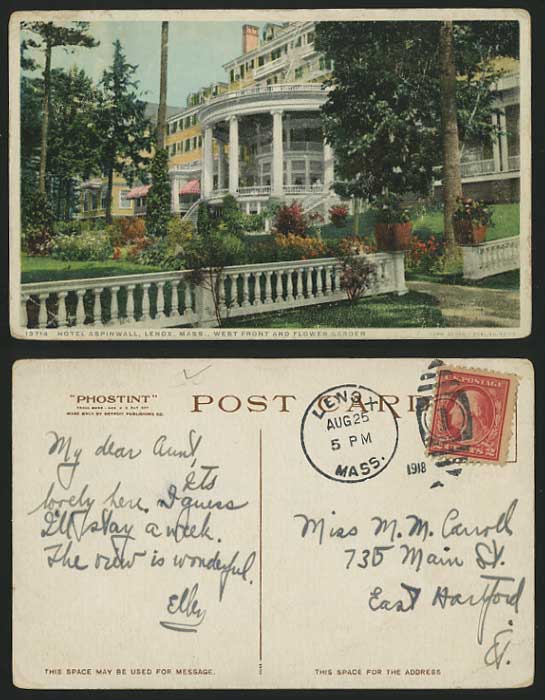 13714 HOTEL ASPINWALL, LENOX, MASS., WEST FRONT AND FLOWER GARDEN
"PHOSTINT"
TRADE MARK
MADE ONLY BY DETROIT PUBLISHING CO.
POST CARD
LENOX
AUG 25
5 PM
MASS.
1918
My dear Aunt,
Its
lovely here. I guess
I'll stay a week.
The view is wonderful.
Miss M. M. Carroll
735 Main St.
East Hartford.
Ct.
THIS SPACE MAY BE USED FOR MESSAGE.
THIS SPACE FOR THE ADDRESS